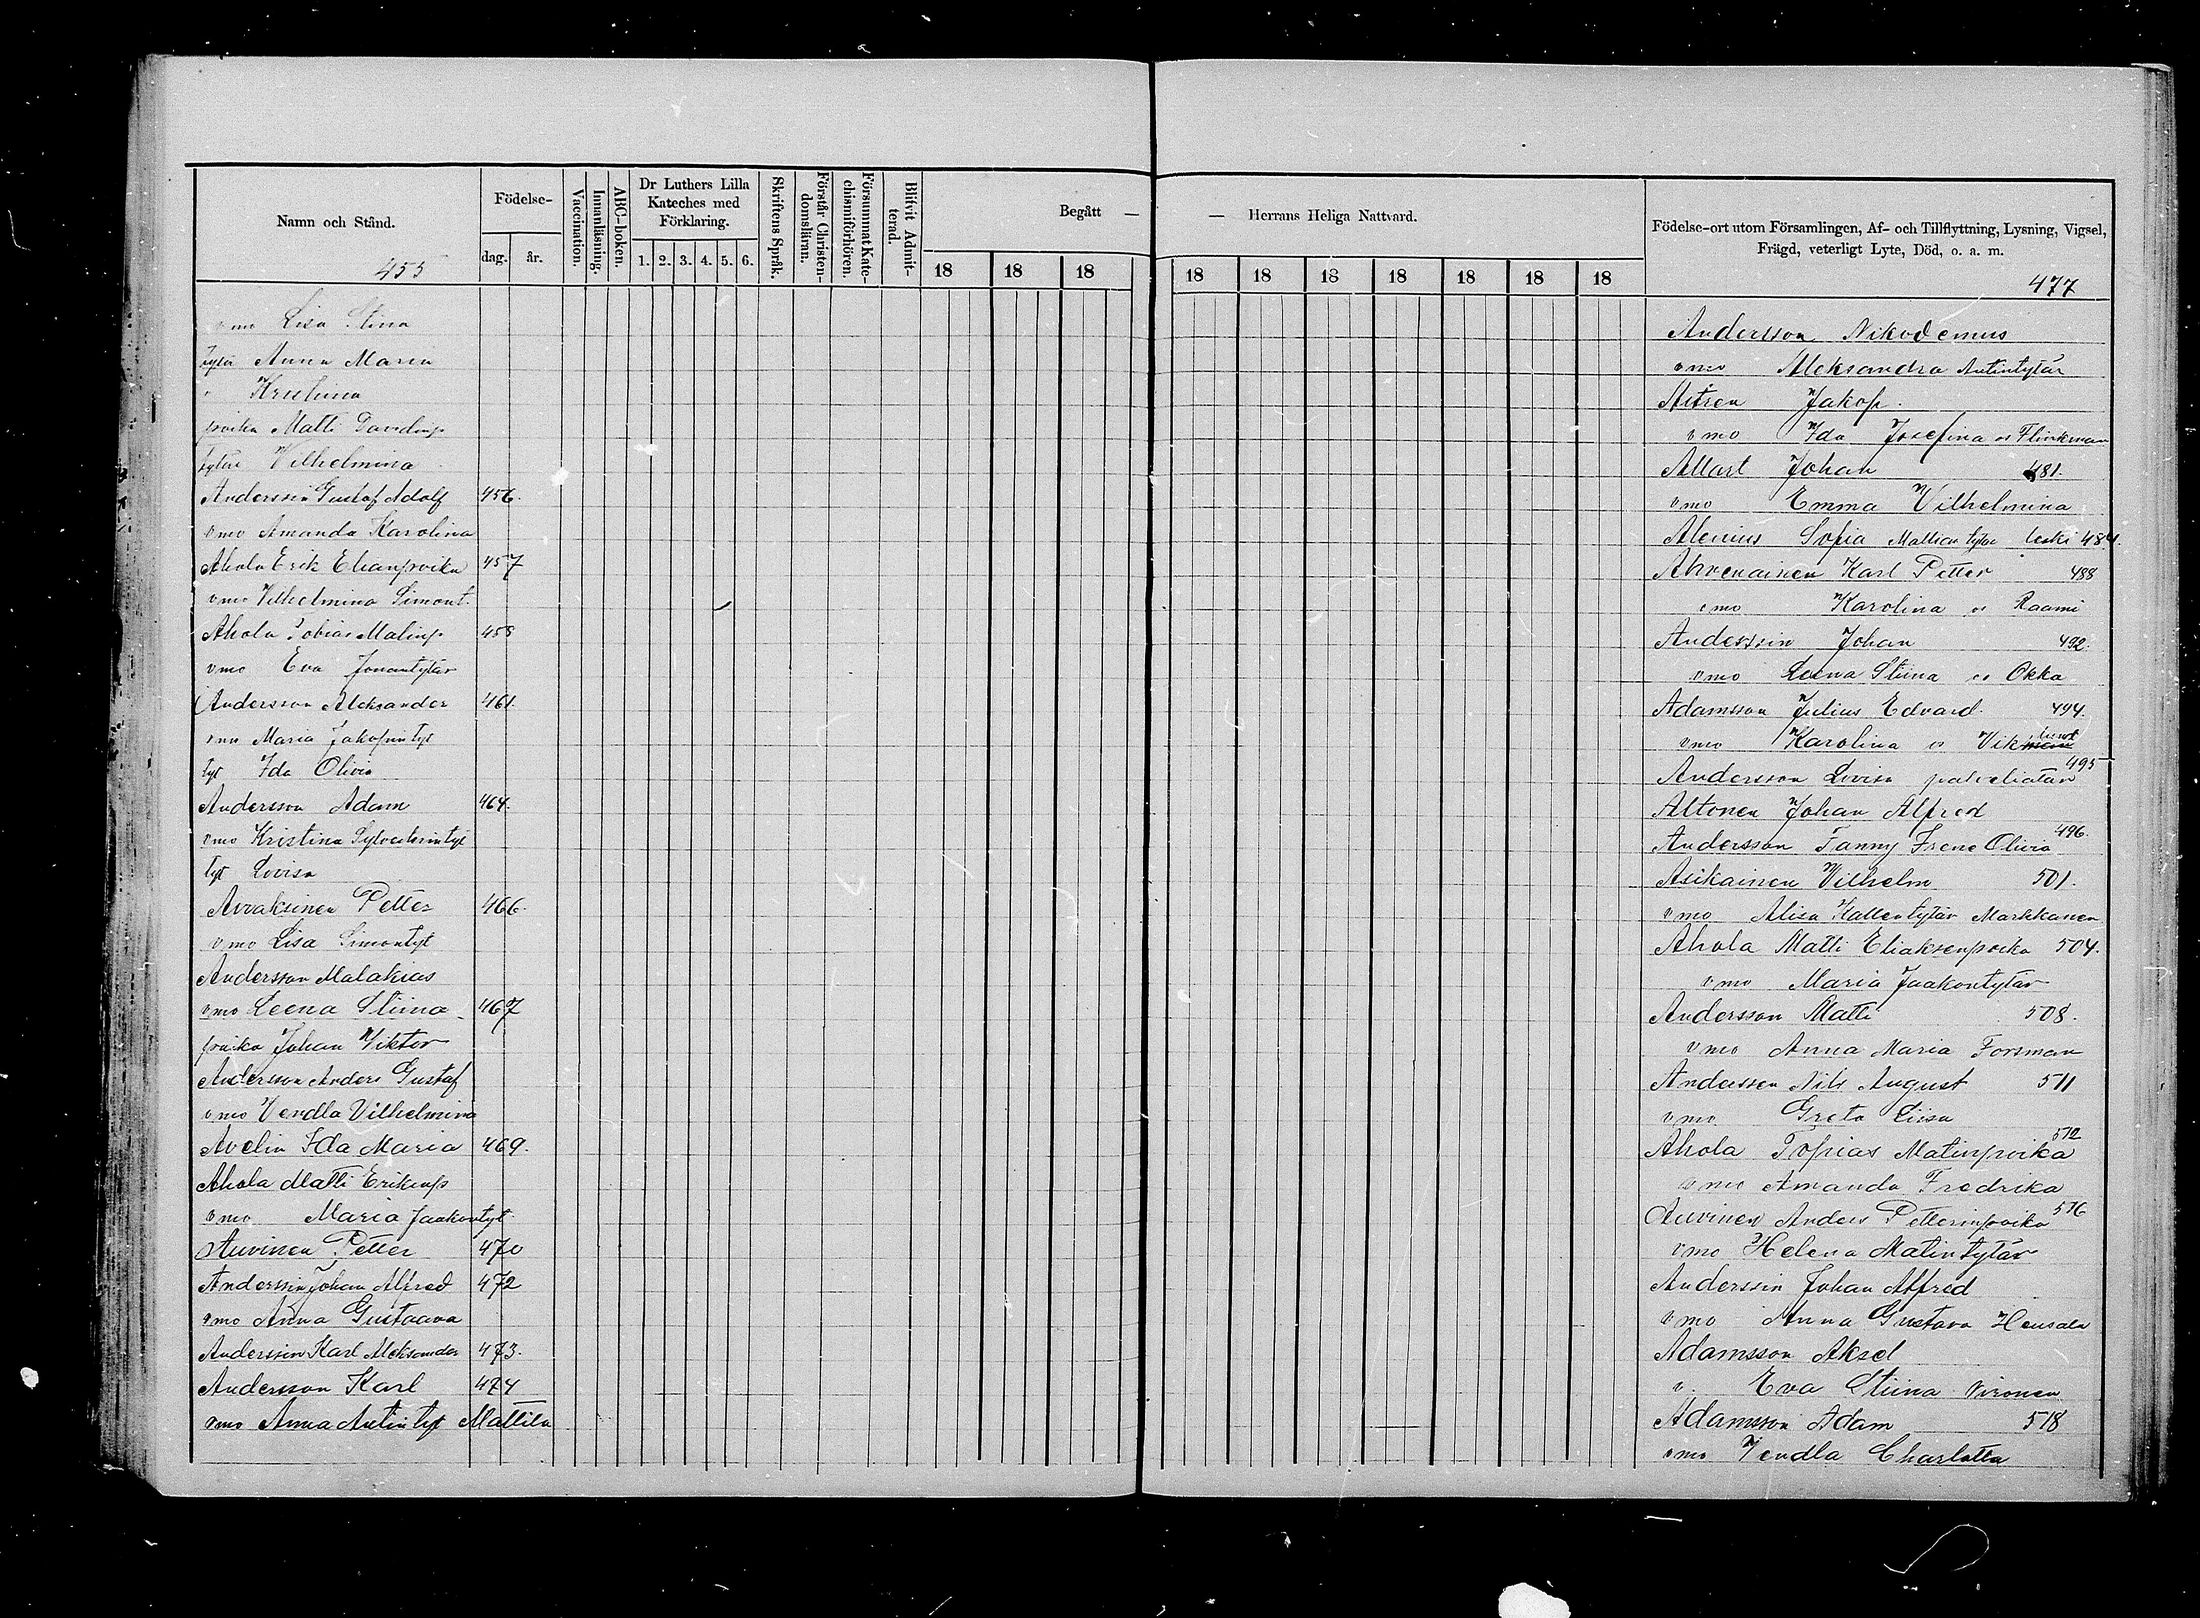 Namn och Stånd.
455
Födelse-
dag. år.
Vaccination.
Innanläsning.
ABC-boken.
Dr Luthers Lilla
Kateches med
Förklaring.
1. 2. 3. 4. 5. 6.
Skriftens Språk.
Förstår Christen-
domsläran.
Försummat Kate-
chismiförhören.
Blifvit Admit-
terad.
Begått —
18 18 18
vmo Lisa Stina
tytär Anna Maria
poika Matti Davidinp
tytär Vilhelmina
Anderssin Gustaf Adolf 456.
vmo Amanda Karolina
Ahola Erik Elianpoika 457
vmo Vilhelmina Simont.
Ahola Tobias Matinp 458
vmo Eva Jonantytär
Andersson Aleksander 461.
vmo Maria Jakopintyt
tyt Ida Olivia
Andersson Adam 464.
vmo Kristina Sylvesterintyt
tyt Lovisa
Avvaksinen Petter 466.
vmo Lisa Simontyt
Andersson Malakias
vmo Leena Stiina 467
poika Johan Viktor
Andersson Anders Gustaf
vmo Vendla Vilhelmina
Avelin Ida Maria 469.
Ahola Matti Erikinp
vmo Maria Jaakontyt
Auvinen Petter 470
Anderssin Johan Alfred 472
vmo Anna Gustaava
Anderssin Karl Aleksander 473.
Andersson Karl 474
vmo Anna Antintyt Mattila
— Herrans Heliga Nattvard.
18 18 18 18 18 18 18
Födelse-ort utom Församlingen, Af- och Tillflyttning, Lysning, Vigsel,
Frägd, veterligt Lyte, Död, o. a. m.
477
Andersson Nikodemus
vmo Aleksandra Antintytär
Jakop.
vmo Ida Josefina os Flinkman
Allart Johan 481.
vmo Emma Vilhelmina
Alenius Sofia Matian tytär leski 484.
Ahvenainen Karl Petter 488
vmo Karolina os Raami
Anderssin Johan 492.
vmo Leena Stiina os Okka
Adamsson Julius Edvard 494.
vmo Karolina os Vik
Andersson Lovisa palveliatar 495
Altonen Johan Alfred
Andersson Fanny Irene Olivia 496.
Asikainen Vilhelm 501.
vmo Alisa Kallentytär Markkanen
Ahola Matti Eliaksenpoika 504.
vmo Maria Jaakontytär
Andersson Matti 508.
vmo Anna Maria Forsman
Andersson Nils August 511
vmo Greta Liisa
Ahola Topias Matinpoika 512
vmo Amanda Fredrika
Auvinen Anders Petterinpoika 516
vmo Helena Matintytär
Anderssin Johan Alfred
vmo Anna Gustava Hensala
Adamsson Aksel
v. Eva Stiina Vironen
Adamsson Adam 518
vmo Vendla Charlotta